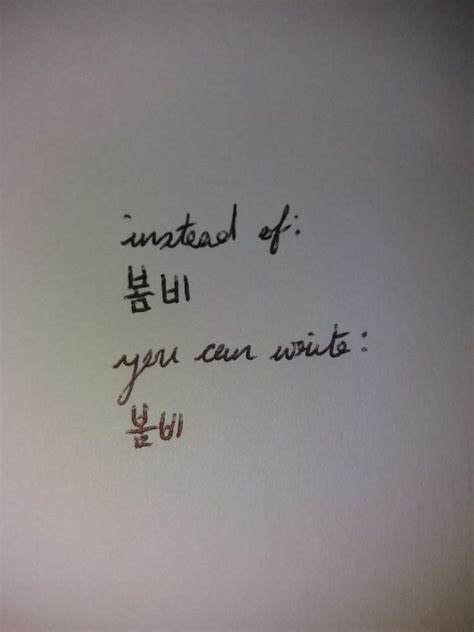 instead of:
봄비
you can write:
봄비